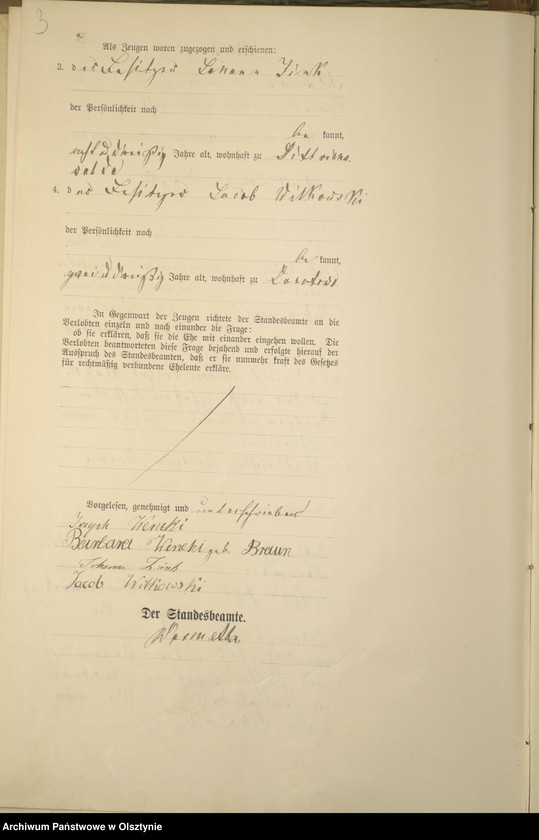 3
Als Zeugen waren zugezogen und erschienen:
3. der Besitzer Johann
der Persönlichkeit nach
be kannt,
acht u dreißig Jahre alt, wohnhaft zu Dittrichs-
walde
4. der Besitzer Jacob Witkowski
der Persönlichkeit nach
be kannt,
zwei u dreißig Jahre alt, wohnhaft zu
In Gegenwart der Zeugen richtete der Standesbeamte an die
Verlobten einzeln und nach einander die Frage:
ob sie erklären, daß sie die Ehe mit einander eingehen wollen. Die
Verlobten beantworteten diese Frage bejahend und erfolgte hierauf der
Ausspruch des Standesbeamten, daß er sie nunmehr kraft des Gesetzes
für rechtmäßig verbundene Eheleute erkläre.
Vorgelesen, genehmigt und unterschrieben
Joseph Wencki
Barbara Wencki geb. Braun
Johann
Jacob Witkowski
Der Standesbeamte.
Archiwum Państwowe w Olsztynie